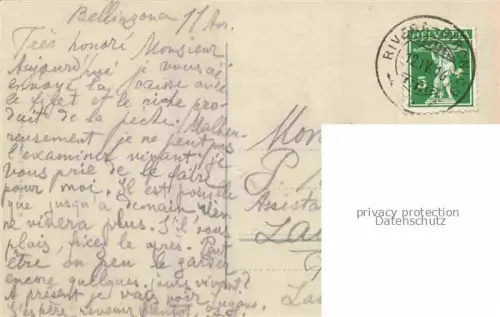 Bellinzona 11 Avr.
Très honoré Monsieur
Aujourd'hui je vous ai
envoyé la caisse avec
le filet et le riche pro-
duit de la peche. Malheu-
reusement je ne peut pas
l'examiner vivant; je
vous prie de le faire
pour moi. Il est possible
que jusqu'à demain rien
ne vivera plus. S'il vous
plais, le après. Peut
être on peu le garder
encore quelques jours vivant?
A présent je vais voir Lugano.
J'espère revenir bientôt.
HELVETIA
5
RIVERA
12.IV.16
Mon
P
Assista
Lau
Lau
privacy protection
Oldthing Datenschutz